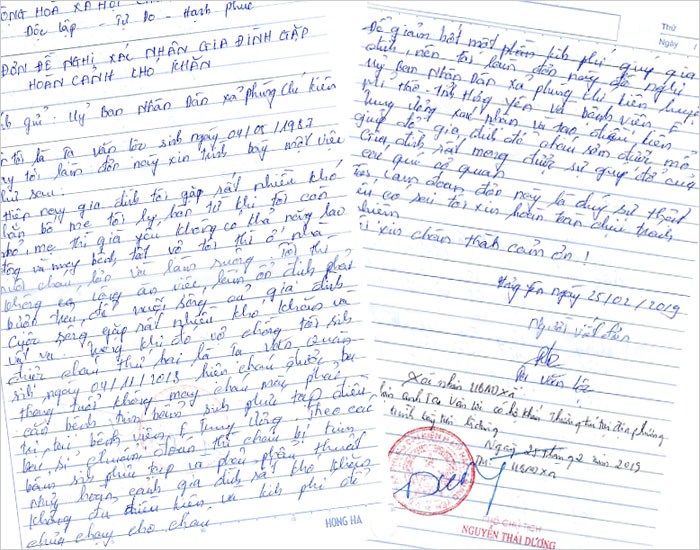 ỘNG HOÀ XÃ HỘI
Độc lập - Tự Do - Hạnh phúc
ĐƠN ĐỀ NGHỊ XÁC NHẬN GIA ĐÌNH GẶP
HOÀN CẢNH KHÓ KHĂN
gửi: Uỷ Ban Nhân Dân xã phùng chí kiên
tôi là Tạ văn lộc sinh ngày 04/05/1987
tôi làm đơn này xin trình bày một việc
như sau:
Hiện nay gia đình tôi gặp rất nhiều khó
khăn bố mẹ tôi ly hôn từ khi tôi còn
nhỏ, mẹ thì già yếu không có khả năng lao
động và nay bệnh tật vợ tôi thì ở nhà
nuôi cháu, tôi
không có công ăn việc, làm
cuộc sống gặp rất nhiều khó khăn và
vất vả. Trong khi đó vợ chồng tôi sinh
được cháu thứ hai là Tạ văn Quang
sinh ngày 04/11/2018 hiện cháu được ba
tháng tuổi không may cháu mắc phải
căn bệnh tim bẩm sinh phức tạp điều
trị tại bệnh viện E trung ương theo các
bác sĩ chuẩn đoán thì cháu bị tim
bẩm sinh phức tạp và phải phẫu thuật
nhưng hoàn cảnh gia đình rất khó khăn
không đủ điều kiện và kinh phí để
chữa chạy cho cháu
HONG HA
Thứ
Ngày
Để giảm bớt một phần kinh phí giúp gia
đình, nên tôi làm đơn này đề nghị
Uỷ Ban Nhân Dân xã phùng chí kiên huyện
mỹ hào - Tỉnh Hưng Yên và bệnh viện E
trung ương xác nhận và tạo điều kiện
giúp đỡ gia đình để cháu sớm được mổ
Gia đình rất mong được sự giúp đỡ của
các quý cơ quan
Tôi cam đoan đơn này là đúng sự thật
nếu có sai tôi xin hoàn toàn chịu trách
nhiệm
Tôi xin chân thành cảm ơn!
Hưng Yên ngày 25/02/2019
Người viết đơn
Tạ văn lộc
Xác nhận UBND xã:
anh Tạ Văn Lộc có hộ khẩu thường trú tại địa phương
trình bày trên là đúng
Ngày 25 tháng 2 năm 2019
TM UBND xã
PHÓ CHỦ TỊCH
NGUYỄN THÁI DƯƠNG